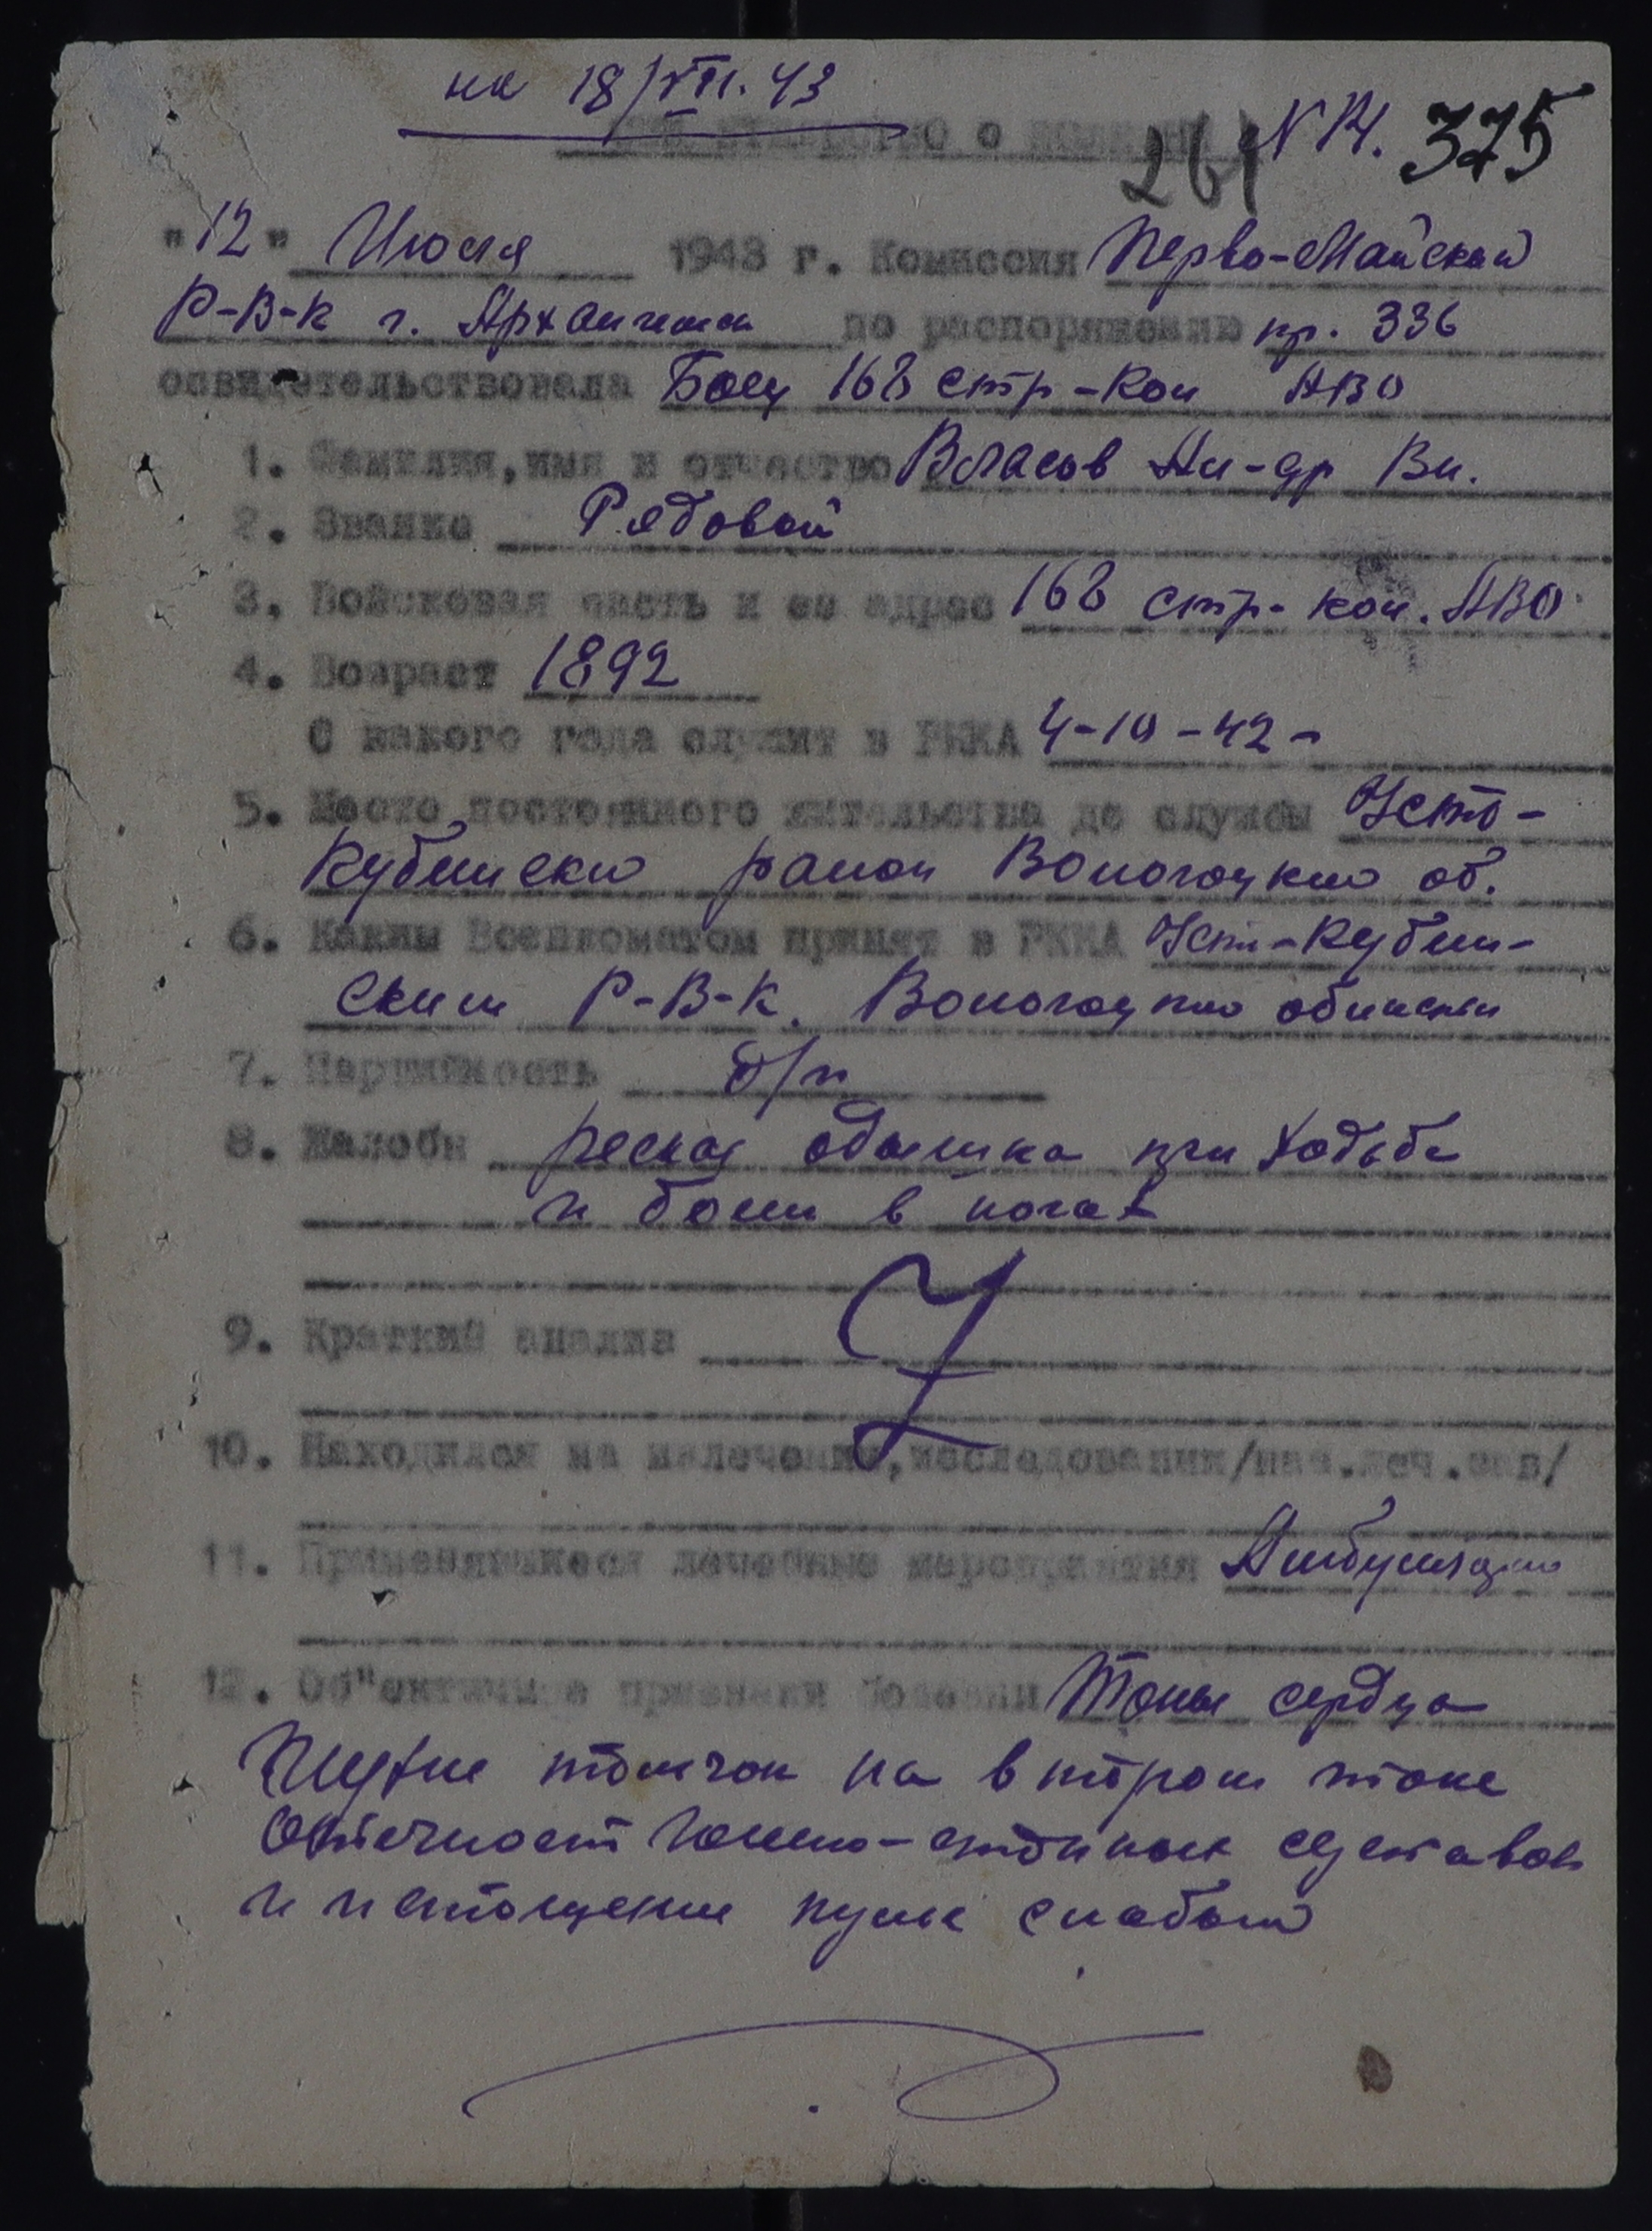 на 18/VII.43
СВИДЕТЕЛЬСТВО о БОЛЕЗНИ
261 N 14. 375
"12" Июля 1943 г. Комиссия Перво-Майский
Р-В-К г. Архангельск по распоряжению пр. 336
освидетельствовала Боец 168 стр-кои АВО
1. Фамилия, имя и отчество Власов Ал-др Вл.
2. Звание Рядовой
3. Войсковая часть и ее адрес 168 стр-кои. АВО
4. Возраст 1892
С какого года служит в РККА 4-10-42-
5. Место постоянного жительства до службы Усть-
Кубинский район Вологодкий об.
6. Каким Военкоматом принят в РККА Усть-Кубин-
ским Р-В-К. Вологоцкио области
7. Партийность б/п
8. Жалобы реская одышка при ходьбе
и боли в ногах
9. Краткий анализ
10. Находился на излечении, исследовании/наз.леч.зав/
11. Применявшиеся лечебные мероприятия Амбулядио
12. Об"ективные признаки болезни Тоны сердца
глухие толчок на втором тоне
Отечност голено-стопных суставов
и истощение пульс слабый